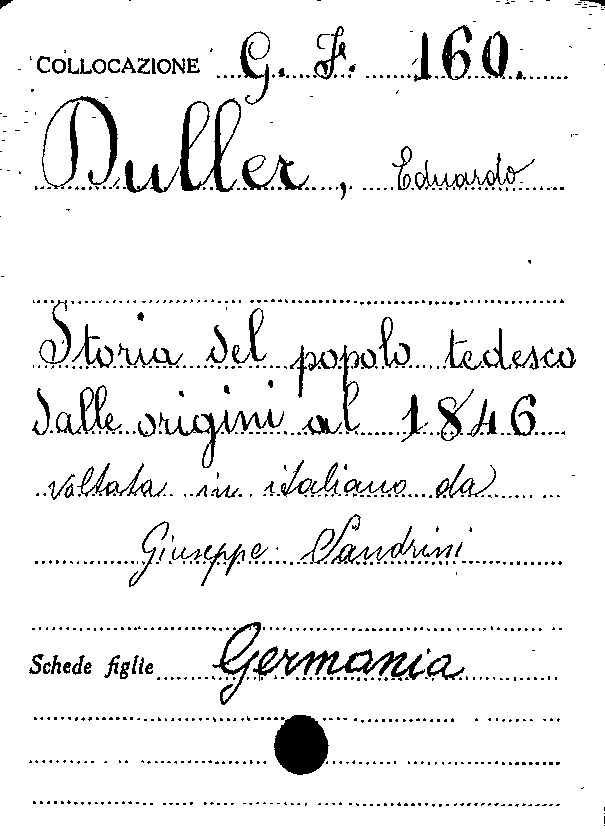 COLLOCAZIONE G. F. 160.
Duller, Eduardo
Storia del popolo tedesco
dalle origini al 1846
voltata in italiano da
Giuseppe Sandrini
Schede figlie Germania